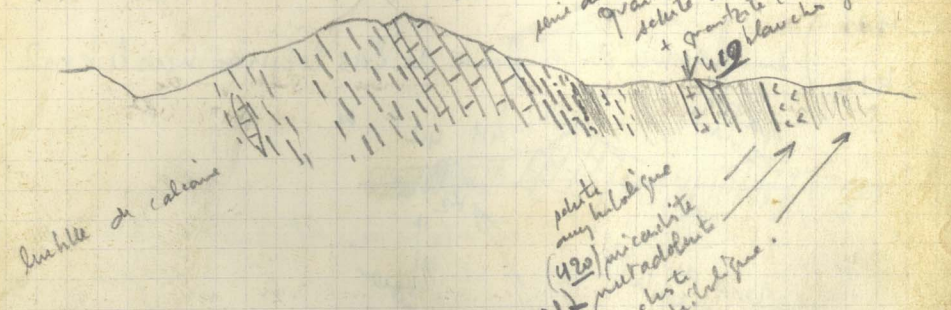 série de
quar
schiste
+ quartzite
blanche
419
lentille de calcaire
schiste
amphibolique
(420) micaschiste
metadolerite
schiste
amphibolique.